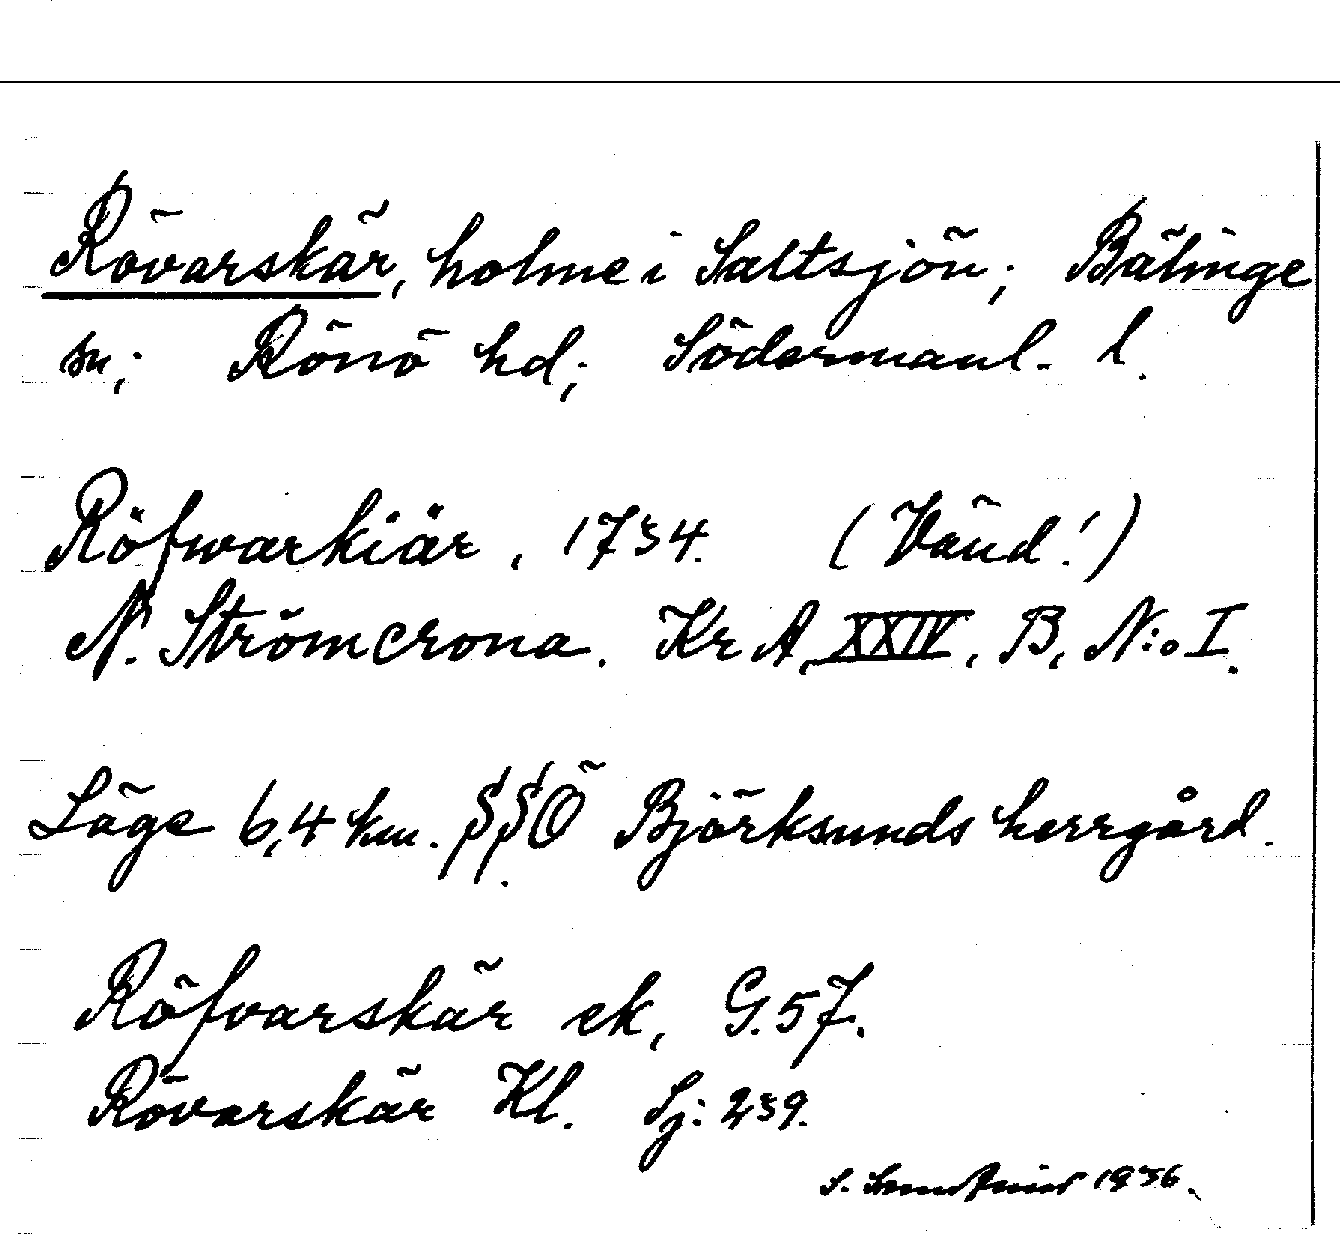 Rövarskär, holme i Saltsjön; Bälinge
sn; Rönö hd; Södermanl. l.
Röfwarkiär, 1734. (Vänd!)
N. Strömcrona. Kr A, XXIV, B, N:o I.
Läge 6,4 km. SSÖ Björksunds herrgård.
Röfvarskär ek, G. 57.
Rövarskär Kl. Sj: 239.
S. 1936.